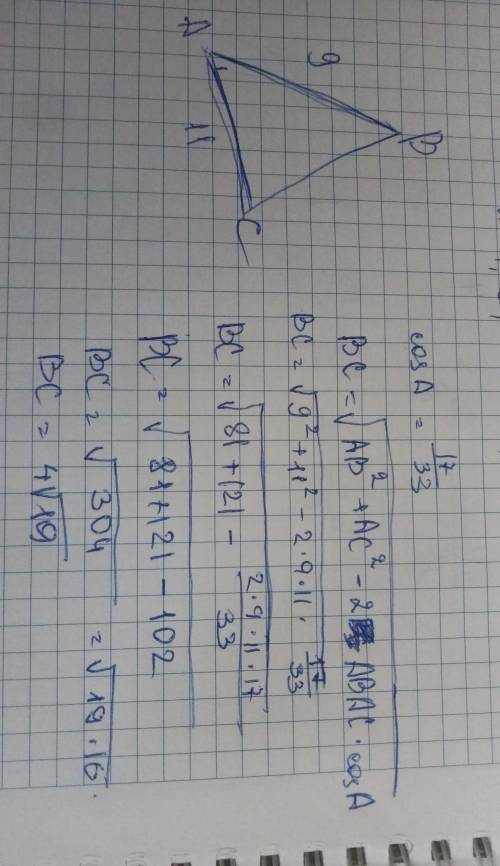 A
9
B
11
C
cos A = 17/33
BC = √(AB² + AC² - 2 AB AC · cos A)
BC = √(9² + 11² - 2·9·11 · 17/33)
BC = √(81 + 121 - (2·9·11·17)/33)
BC = √(81 + 121 - 102)
BC = √304 = √(19·16)
BC = 4√19